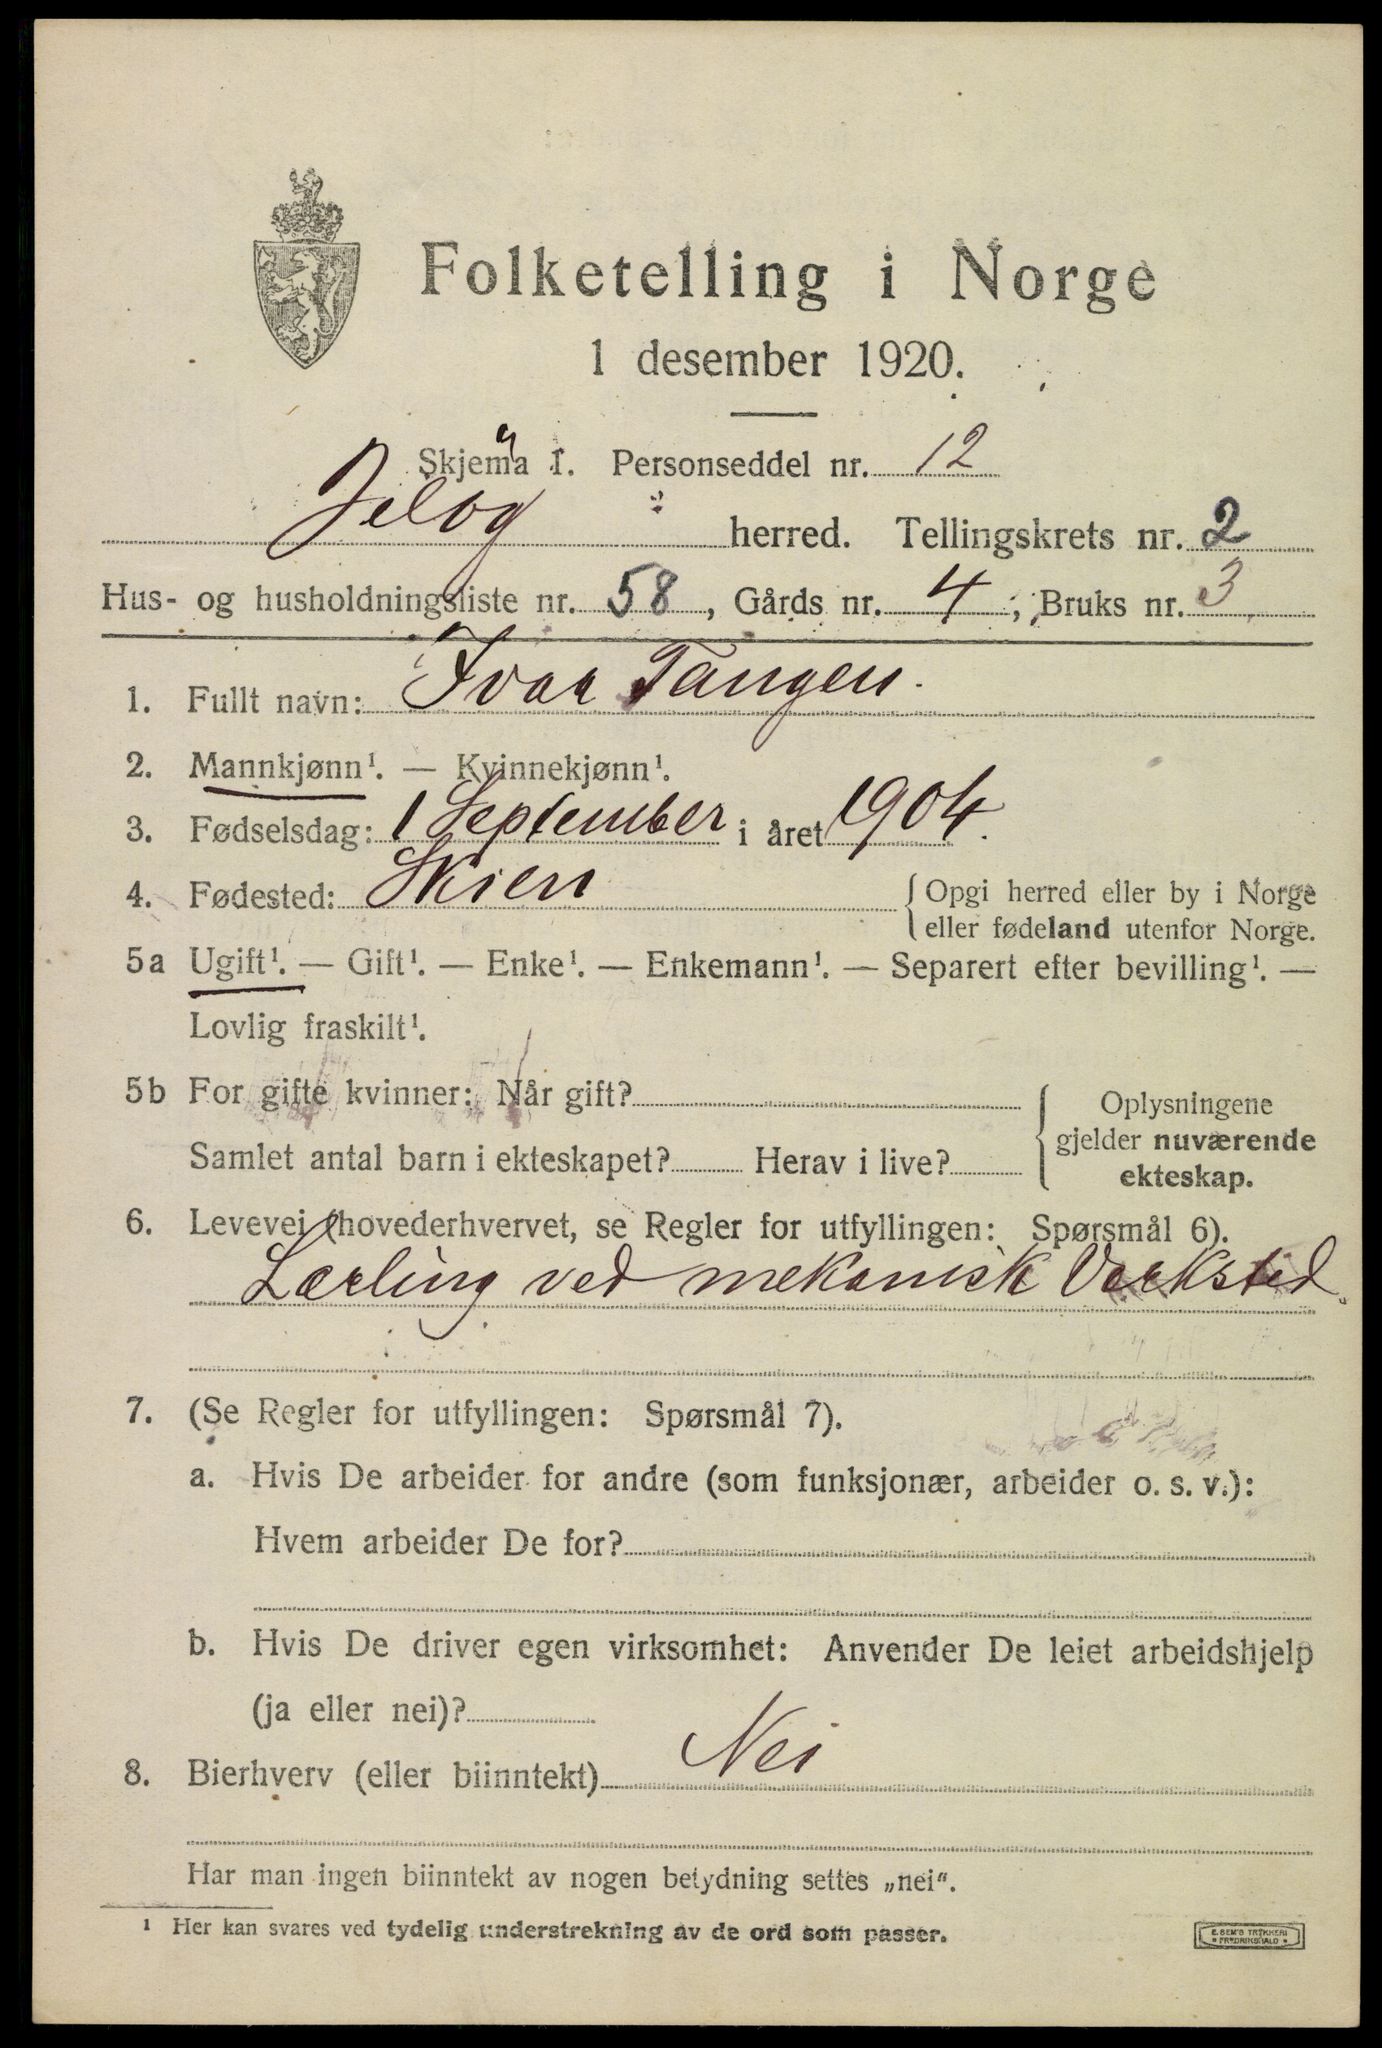 Folketelling i Norge
1 desember 1920.
Skjema 1. Personseddel nr. 12
Jeløy herred. Tellingskrets nr. 2
Hus- og husholdningsliste nr. 58, Gårds nr. 4, Bruks nr. 3
1. Fullt navn: Ivar Tangen.
2. Mannkjønn¹. — Kvinnekjønn¹.
3. Fødselsdag: 1 September i året 1904.
4. Fødested: Skien { Opgi herred eller by i Norge
eller fødeland utenfor Norge.
5a Ugift¹. — Gift¹. — Enke¹. — Enkemann¹. — Separert efter bevilling¹. —
Lovlig fraskilt¹.
5b For gifte kvinner: Når gift? { Oplysningene
gjelder nuværende
Samlet antal barn i ekteskapet? Herav i live?
ekteskap.
6. Levevei (hovederhvervet, se Regler for utfyllingen: Spørsmål 6).
Lærling ved mekanisk Verksted.
7. (Se Regler for utfyllingen: Spørsmål 7).
a. Hvis De arbeider for andre (som funksjonær, arbeider o. s. v.):
Hvem arbeider De for?
b. Hvis De driver egen virksomhet: Anvender De leiet arbeidshjelp
(ja eller nei)?
8. Bierhverv (eller biinntekt) Nei
Har man ingen biinntekt av nogen betydning settes „nei".
¹ Her kan svares ved tydelig understrekning av de ord som passer.
E. SEM'S TRYKKERI
FREDRIKSHALD